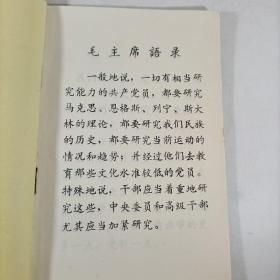 毛主席語录
一般地说，一切有相当研
究能力的共产党员，都要研究
马克思、恩格斯、列宁、斯大
林的理论，都要研究我们民族
的历史，都要研究当前运动的
情况和趋势；并经过他们去教
育那些文化水准较低的党员。
特殊地说，干部应当着重地研
究这些，中央委员和高级干部
尤其应当加紧研究。